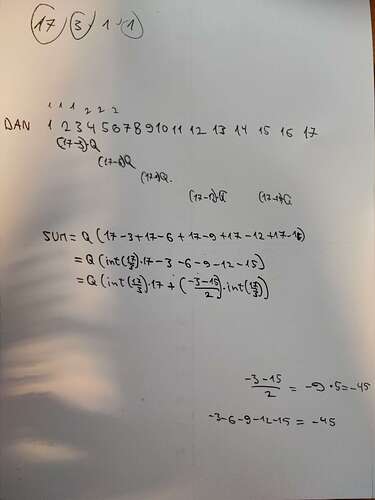 (17, 3, 1, 1)
1 1 1 2 2 2
DAN 1 2 3 4 5 6 7 8 9 10 11 12 13 14 15 16 17
(17-3)Q
(17-6)Q
SUM = Q (17-3+17-6+17-9+17-12+17-15)
= Q (int(17/3)·17-3-6-9-12-15)
= Q (int(17/3)·17 + (-3-15/2)·int(17/3))
-3-15/2 = -9·5=-45
-3-6-9-12-15 = -45